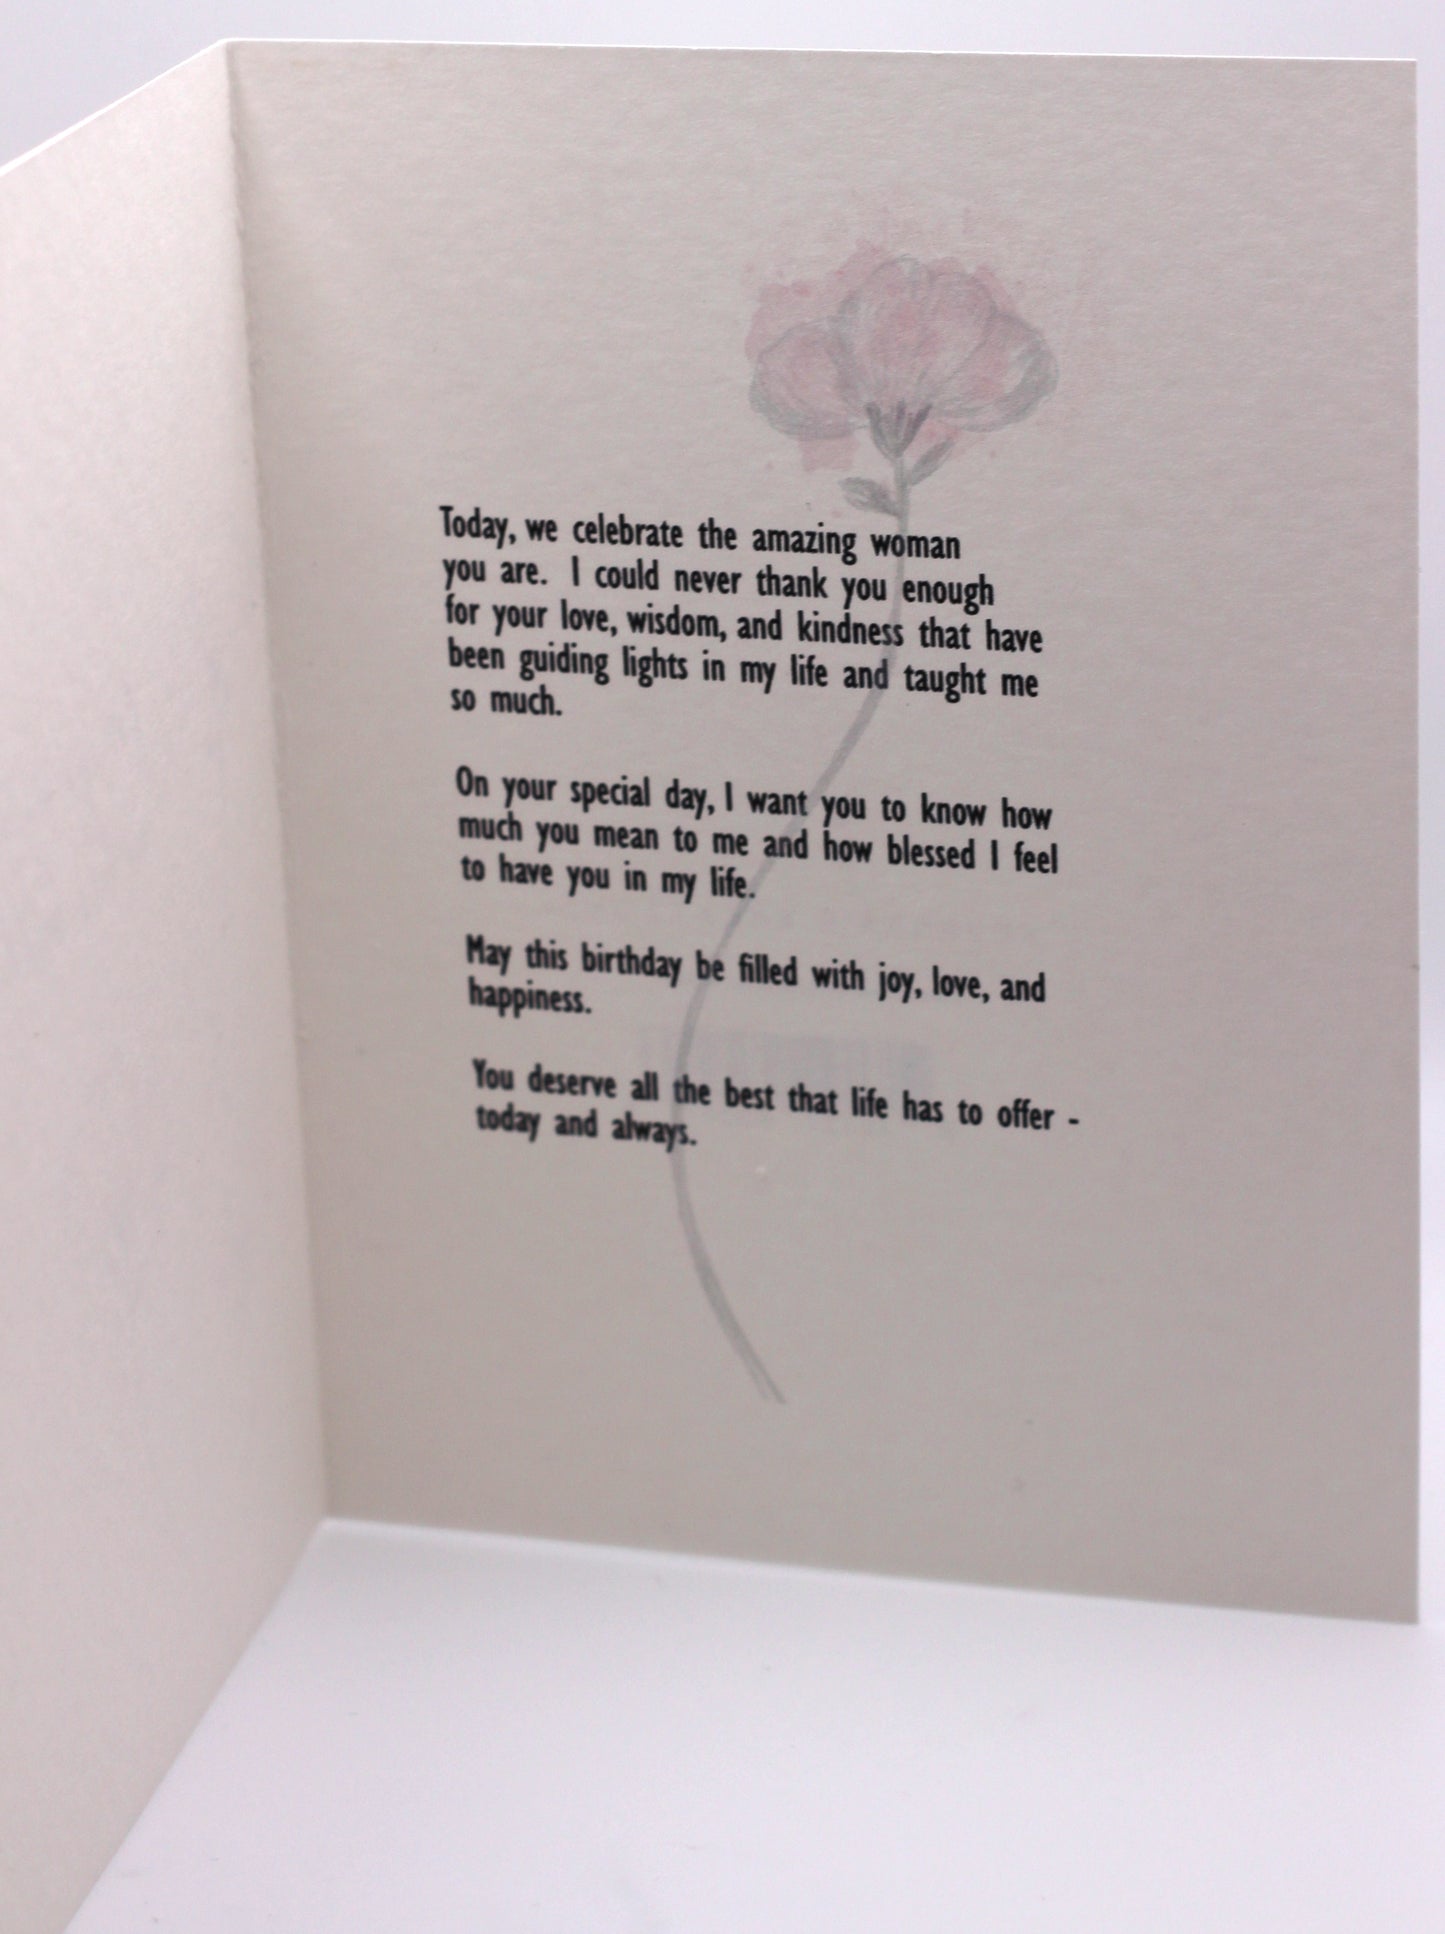 Today, we celebrate the amazing woman
you are. I could never thank you enough
for your love, wisdom, and kindness that have
been guiding lights in my life and taught me
so much.
On your special day, I want you to know how
much you mean to me and how blessed I feel
to have you in my life.
May this birthday be filled with joy, love, and
happiness.
You deserve all the best that life has to offer -
today and always.